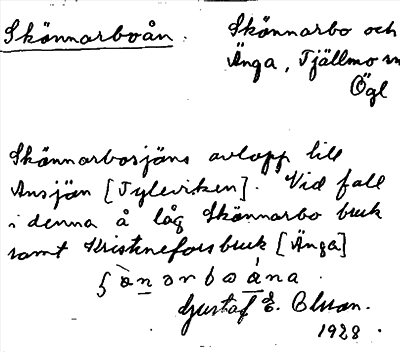 Skönnarboån.
Skönnarbo och
Änga, Tjällmo sn
Ögl
Skönnarbosjöns avlopp till
Ansjön [Tyleviken]. Vid fall
i denna å låg Skönnarbo bruk
samt Kristineforsbruk [Änga]
Gustaf E. Olsson.
1928.